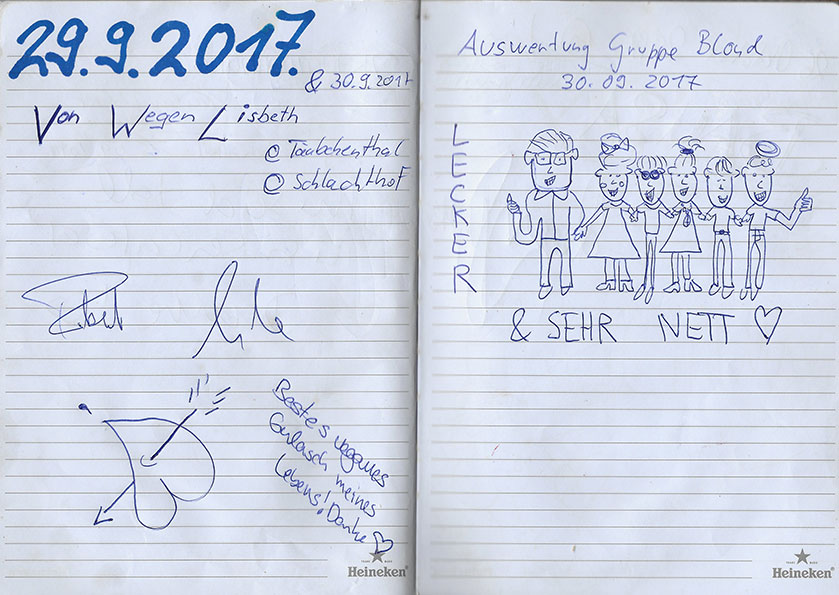 29.9.2017.
& 30.9.2017
Von Wegen Lisbeth
@ Täubchenthal
@ Schlachthof
Bestes veganes
Gulasch meines
Lebens! Danke ♡
TRADE MARK
Heineken®
Auswertung Gruppe Blond
30.09.2017
LECKER
& SEHR NETT ♡
TRADE MARK
Heineken®